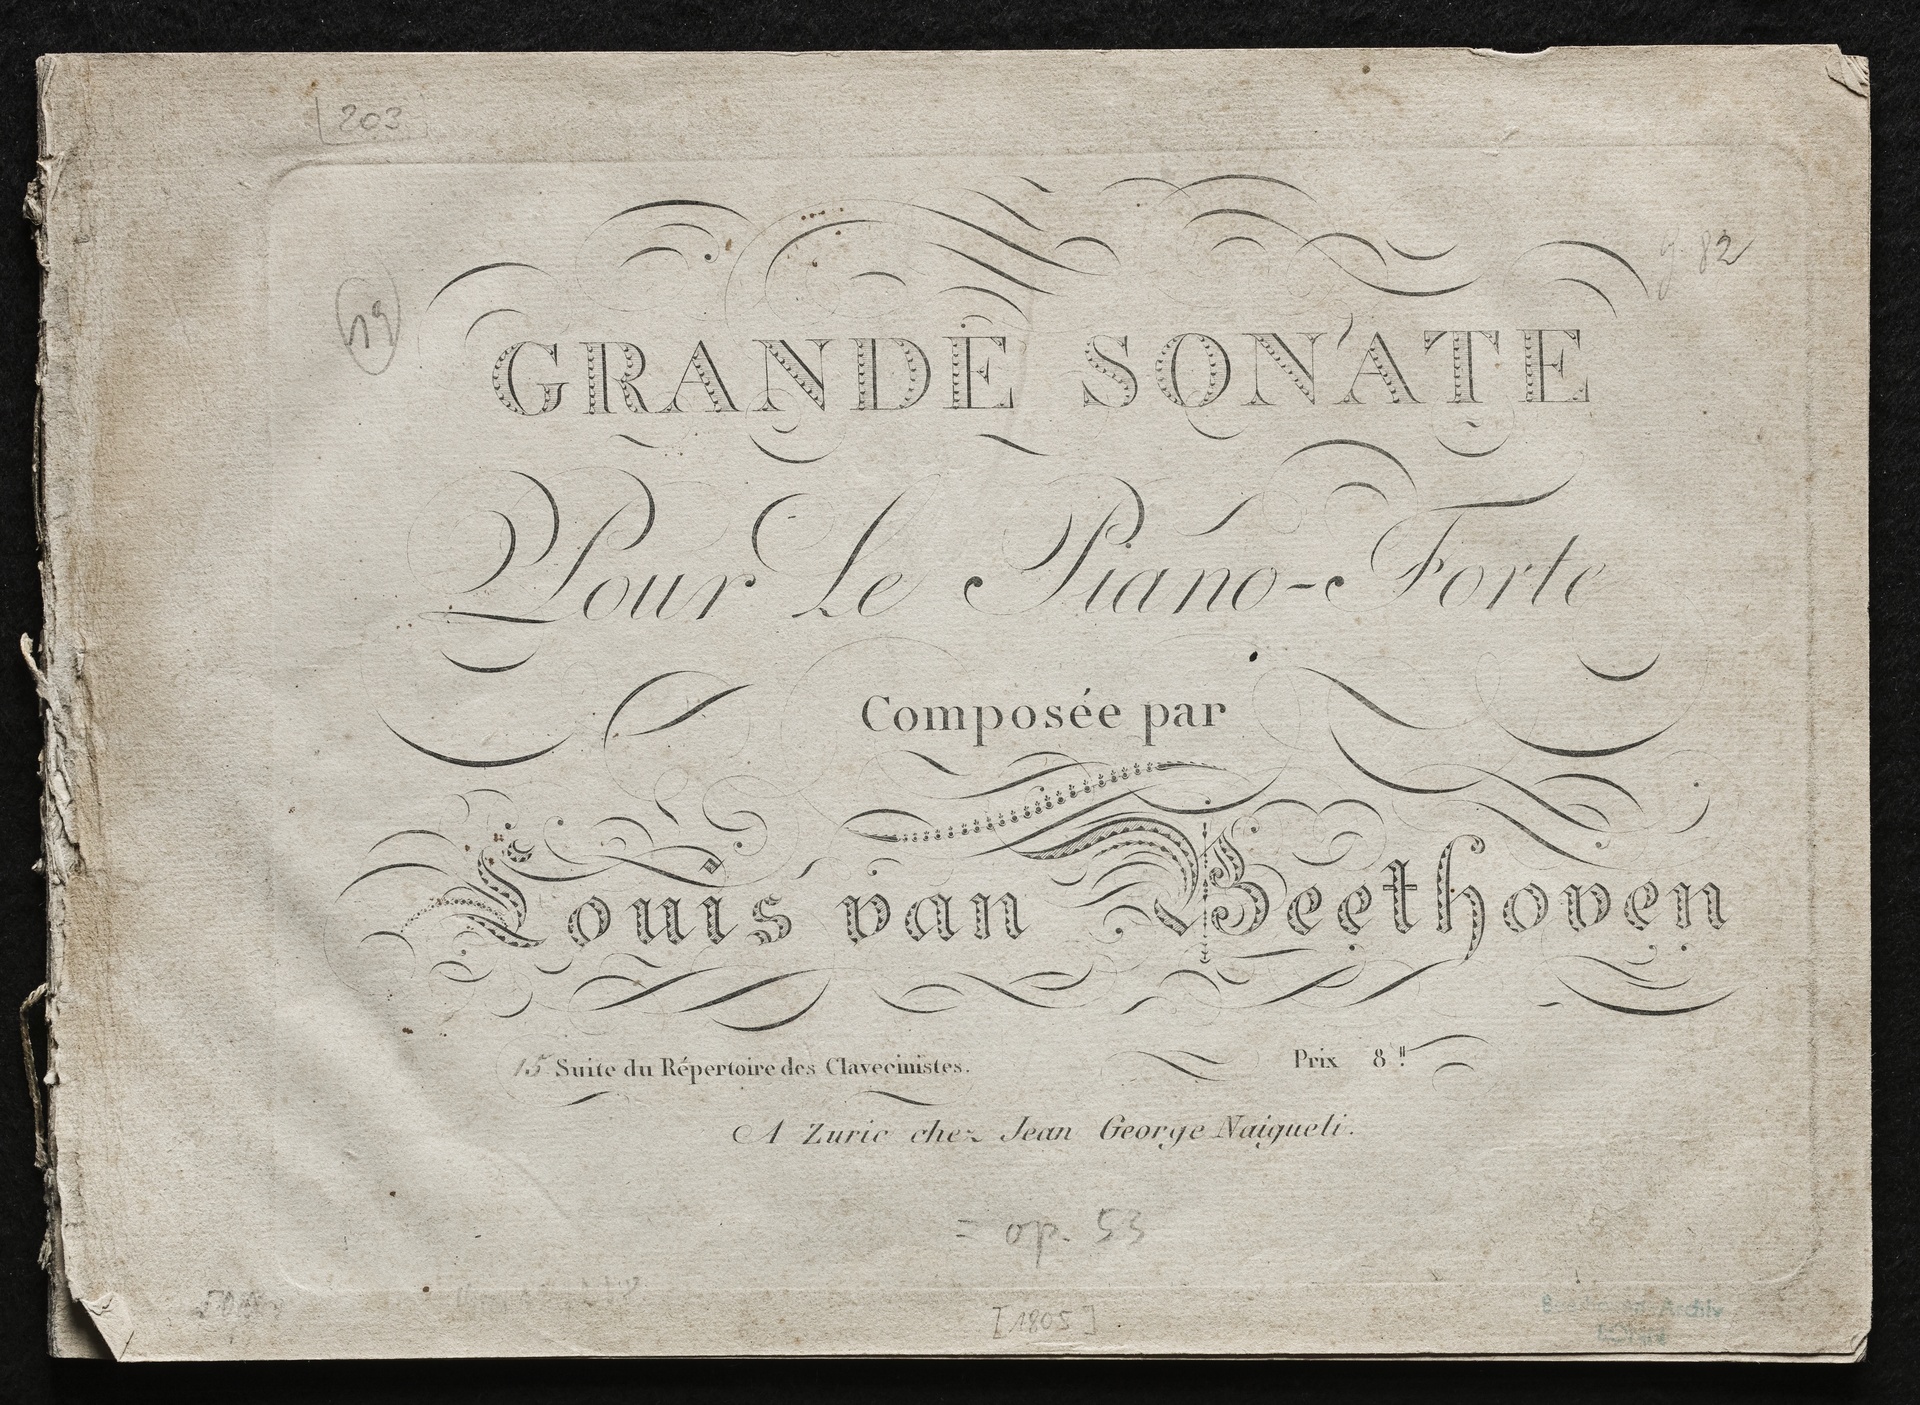 203
g. 82
19
GRANDE SONATE
Pour Le Piano-Forte
Composée par
Louis van Beethoven
15 Suite du Répertoire des Clavecinistes.
Prix 8 ₶
A Zuric chez Jean George Naigueli.
= op. 53
[1805]
Archiv